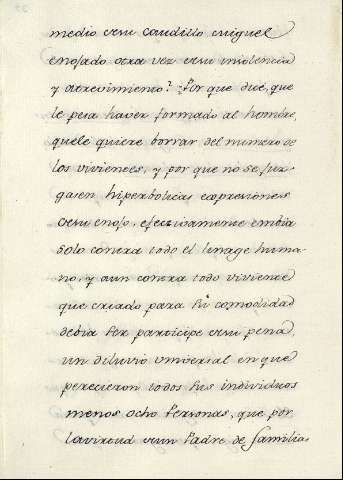 medio de su caudillo miguel
enojado otra vez de su insolencia
y atrevimiento? Por que dice, que
le pesa haver formado al hombre,
que le quiere borrar del numero de
los vivientes, y por que no se juz-
guen hiperbolicas expresiones
de su enojo, efectivamente embia
solo contra todo el linage huma-
no, y aun contra todo viviente
que criado para su comodidad
debia ser participe de su pena,
un diluvio universal en que
perecieron todos sus individuos
menos ocho Personas, que por
la virtud de un Padre de familias